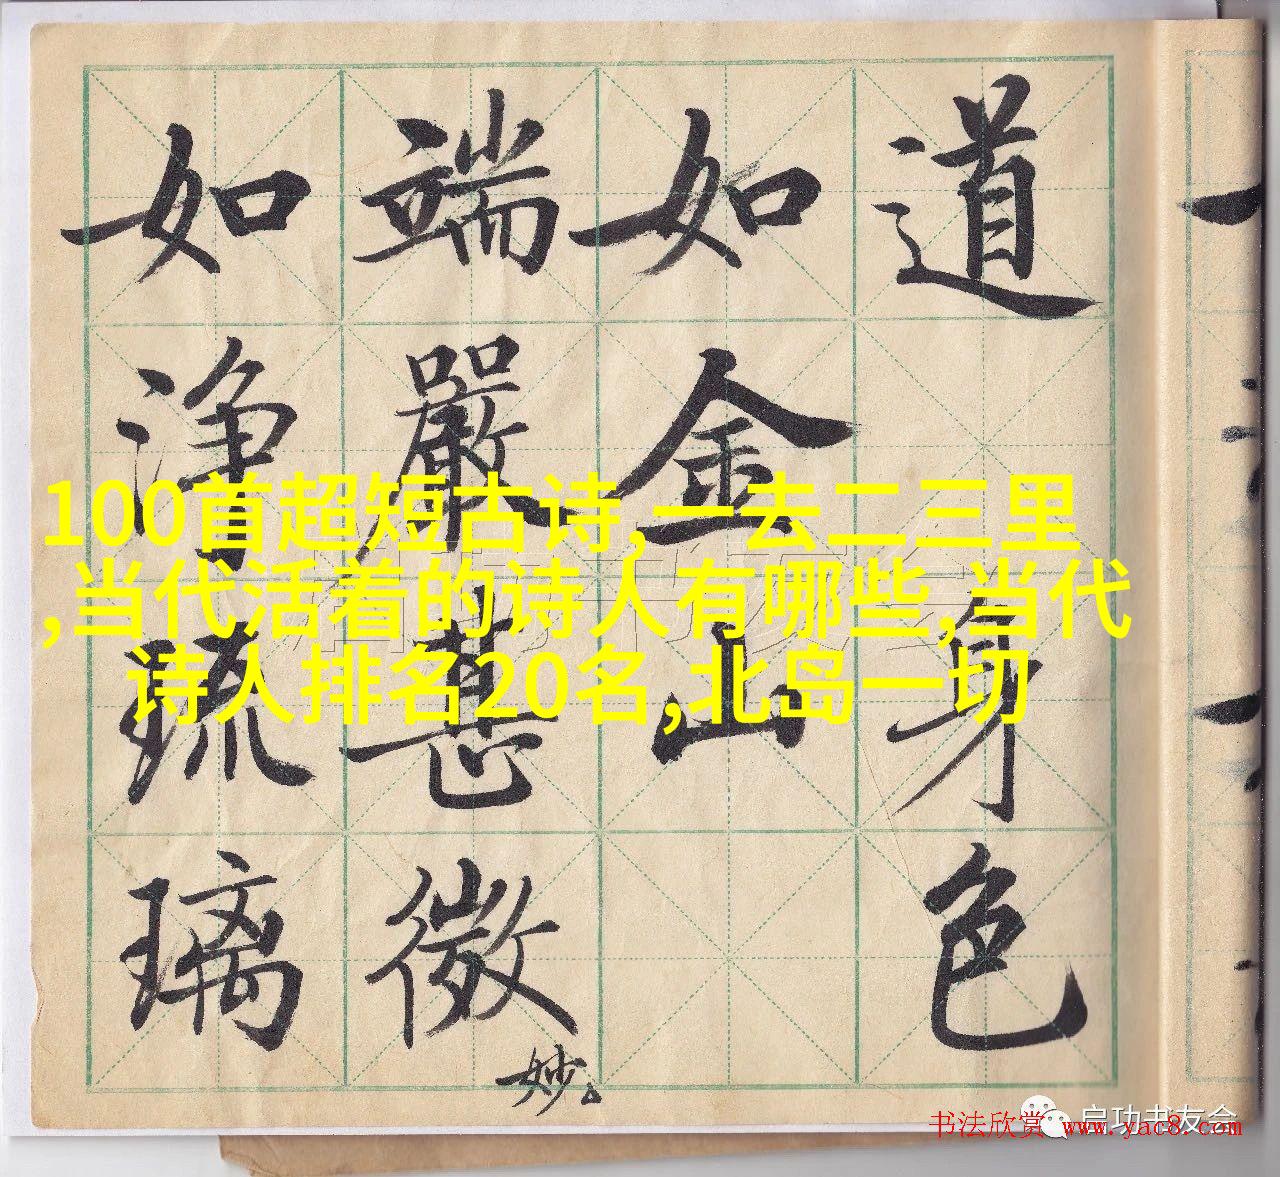 道身色
如金山
端嚴甚微妙
如淨琉璃
100首超短古诗,一去二三里
,当代活着的诗人有哪些,当代
诗人排名20名,北岛一切
启功书友会
书法欣赏 www.yac8.com